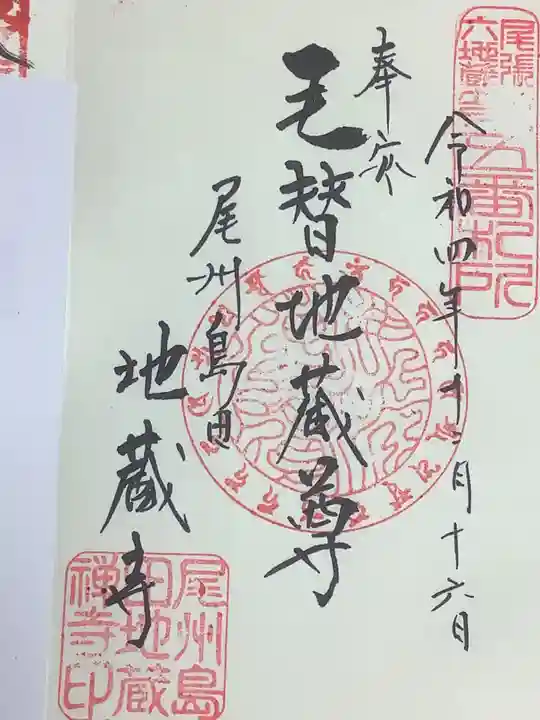 尾張
六地蔵
五番札所
令和四年十二月十六日
奉拝
毛替地蔵尊
尾州島田
地蔵寺
尾州島
田地蔵
禅寺印